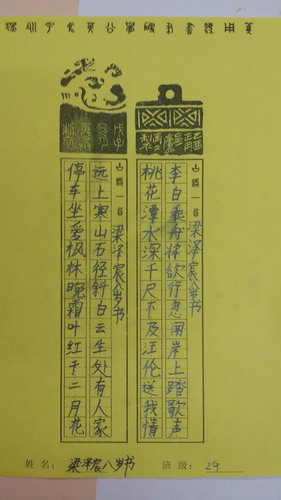 古诗一首 梁泽宸八岁书
李白乘舟将欲行忽闻岸上踏歌声
桃花潭水深千尺不及汪伦送我情
古诗一首 梁泽宸八岁书
远上寒山石径斜白云生处有人家
停车坐爱枫林晚霜叶红于二月花
姓名: 梁泽宸八岁书 班级: 29